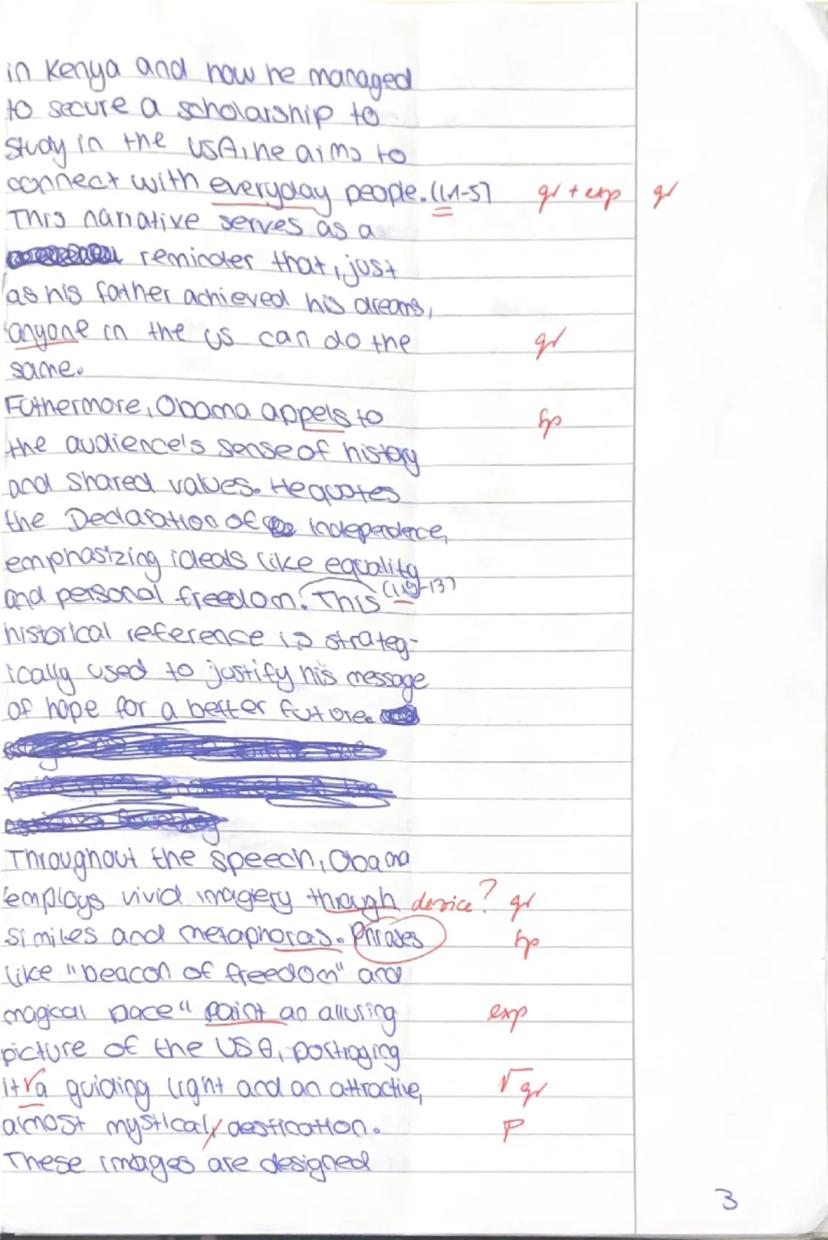 in Kenya and how he managed
to secure a scholarship to
study in the USA, he aims to
connect with everyday people. (l.1-5) gr + exp gr
This narrative serves as a
reminder that, just
as his father achieved his dreams,
anyone in the US can do the gr
same.
Futhermore, Obama appels to sp
the audience's sense of history
and shared values. He quotes
the Declaration of independence,
emphasizing ideals like equality
and personal freedom. This (l.9-13)
historical reference is strateg-
ically used to justify his message
of hope for a better future.
Throughout the speech, Obama
employs vivid imagery through device? gr
similes and metaphoras. Phrases sp
like "beacon of freedom" and
magical place" paint an alluring exp
picture of the USA, portraging
it √a guiding light and an attractive, √gr
almost mystical, destication. P
These images are designed
3